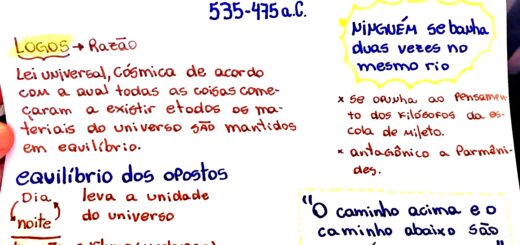 535-475 a.C.
LOGOS → Razão
Lei universal, cósmica de acordo
com a qual todas as coisas come-
çaram a existir e todos os ma-
teriais do universo são mantidos
em equilíbrio.
equilíbrio dos opostos
Dia
noite
leva a unidade
do universo
NINGUÉM se banha
duas vezes no
mesmo rio
x se opunha ao pensamen-
to dos filósofos da es-
cola de Mileto.
x antagônico a Parmêni-
des.
"O caminho acima e o
caminho abaixo são